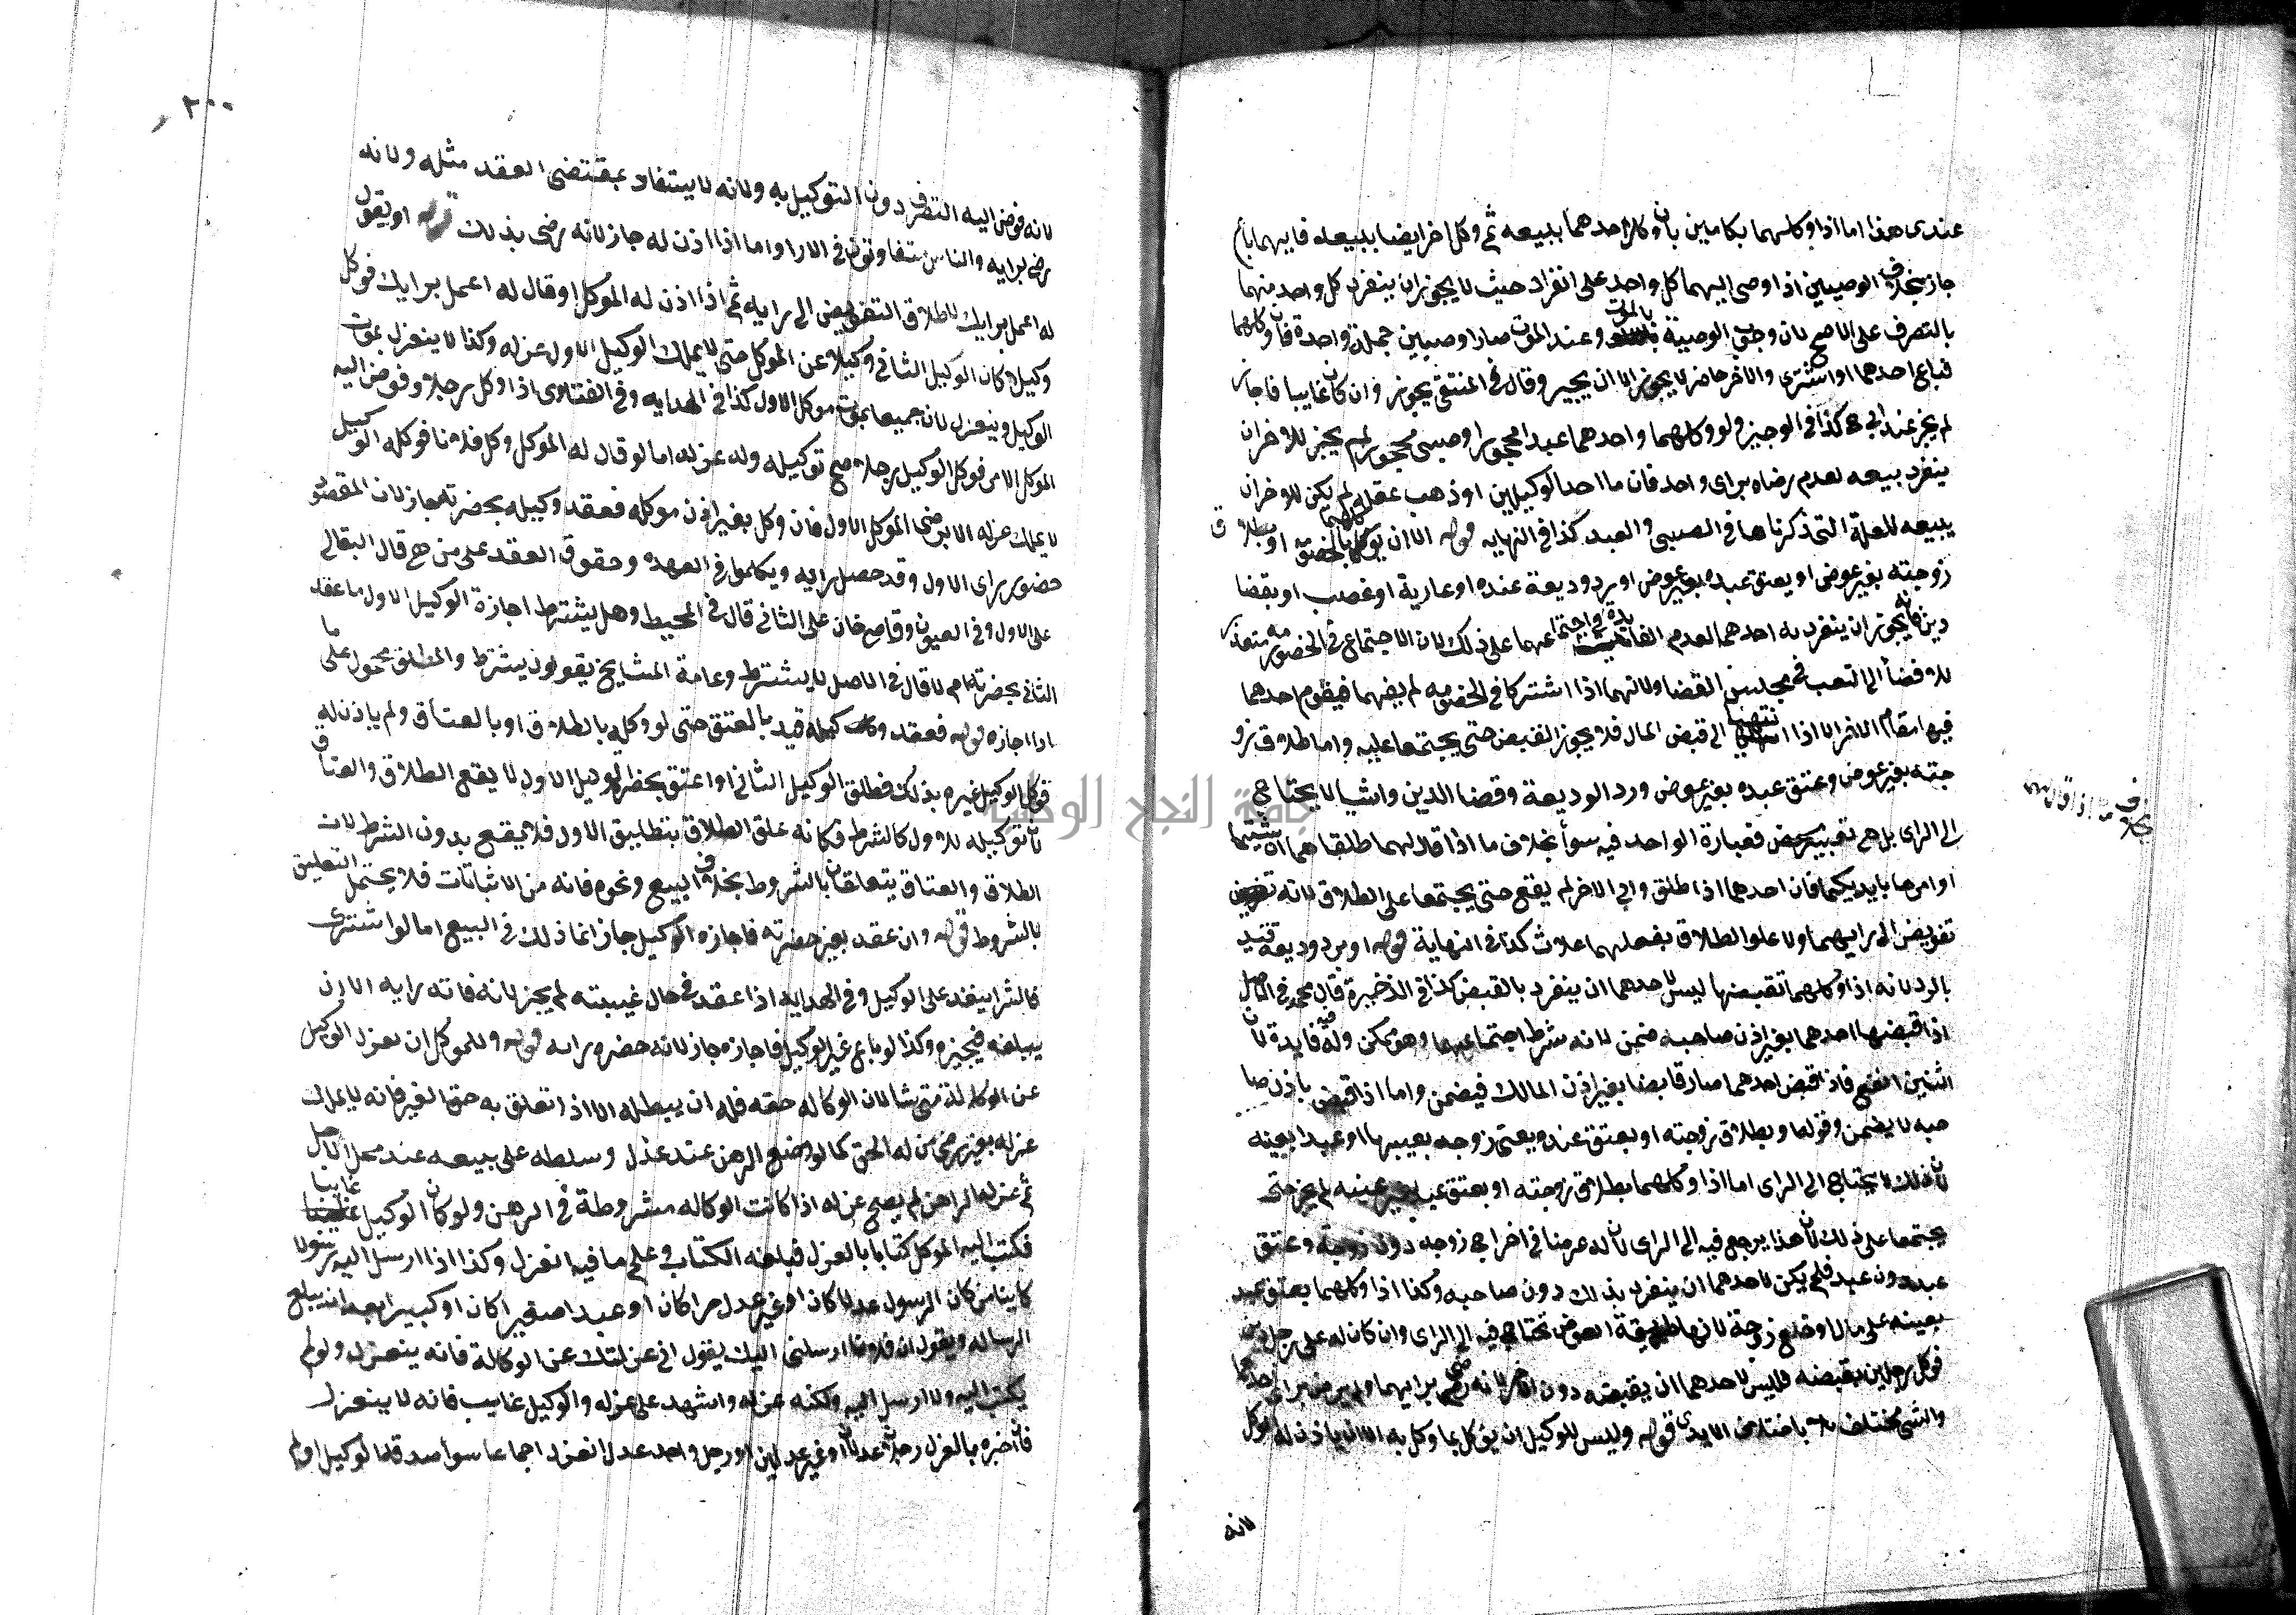 عندى هذا اما اذا وكلهما بكلامين بان وكل احدهما ببيعه ثم وكل اخر ايضا ببيعه فايهما باع
جاز بخلاف الوصيين اذا اوصى اليهما كل واحد على انفراد حيث لا يجوز ان ينفرد كل واحد منهما
بالتصرف على الاصح لان وجوب الوصية بالموت وعند الموت صارا وصيين جملة واحدة فان وكلهما
فباع احدهما او اشترى والاخر حاضر لا يجوز الا ان يجيز وقال فى المنتقى يجوز وان كان غايبا فاجاز
لم يجز عند ابي ح كذا فى الوجيز ولو وكلهما واحدهما عبدا محجورا او صبى محجور لم يجز للاخر ان
ينفرد ببيعه لعدم رضاه براى واحد فان مات احد الوكيلين او ذهب عقله لم يكن للاخر ان
يبيعه للعلة التى ذكرناها فى الصبى والعبد كذا فى النهايه قوله الا ان يوكلهما بالخصومة او بطلاق
زوجته بغير عوض او بعتق عبده بغير عوض او برد وديعة عنده او عارية او غصب او بقضا
دين فانه يجوز ان ينفرد به احدهما لعدم الفايدة فى اجتماعهما على ذلك لان الاجتماع فى الخصومه متعذر
للافضا الى الشعب فى مجلس القضا ولانهما اذا اشتركا فى الخصومه لم يفهما فيقوم احدهما
فيها مقام الاخر الا اذا انتهيا الى قبض المال فلا يجوز القبض حتى يجتمعا عليه واما طلاق زو
جته بغير عوض وعتق عبده بغير عوض ورد الوديعة وقضا الدين واشيا لا يحتاج
الى الراى بل هى تعبير محض فعبارة الواحد فيه سوا بخلاف ما اذا قال لهما طلقاها ان شيتما
او امرها بايديكما فان احدهما اذا طلق وابى الاخر لم يقع حتى يجتمعا على الطلاق لانه
تفويض الى رايهما ولا علوا الطلاق بفعلهما كذا فى النهاية قوله او برد وديعة قيد
بالرد لانه اذا وكلهما بقبضها ليس لاحدهما ان ينفرد بالقبض كذا فى الذخيرة قال محمد فى الاصل
اذا قبضها احدهما بغير اذن صاحبه ضمن لانه شرط اجتماعهما وهو ممكن وله فيه فايدة لان
اثنين انفع فاذا قبض احدهما صار قابضا بغير اذن المالك فيضمن واما اذا قبض باذن صا
حبه لا يضمن وقولها وبطلاق زوجته او بعتق عنده ويعنى زوجه بعينها او عبدا بعينه
لان ذلك لا يحتاج الى الراى اما اذا وكلهما بطلاق زوجته او بعتق عبد بغير عينه لم يجز حتى
يجتمعا على ذلك لان هذا يرجع فيه الى الراى لان له غرضا فى اخراج زوجه دون زوجة وعتق
عبد دون عبد فلم يكن لاحدهما ان ينفرد بذلك دون صاحبه وكذا اذا وكلهما بعتق عبد
بعينه على مال او خلع زوجة لانها طريقة العوض تحتاج فيه الى الراى وان كان له على رجل دين
فوكل رجلين بقبضه فليس لاحدهما ان يقبضه دون الاخر لانه رضى برايهما ولم يرض براى احدهما
والشى مختلف باختلاف الايدى قوله وليس للوكيل ان يوكل بما وكل به الا ان ياذن له الموكل
لانه
بخلاف ما اذا قال
٢٠٠
لانه فوض اليه التصرف دون التوكيل به ولانه لا يستفاد بمقتضى العقد مثله ولانه
رضى برايه والناس متفاوتون فى الارا واما اذا اذن له جاز لانه رضى بذلك قوله او يقول
له اعمل برايك لاطلاق التفويض الى رايه ثم اذا اذن له الموكل او قال له اعمل برايك فوكل
وكيلا كان الوكيل الثانى وكيلا عن الموكل حتى لا يملك الوكيل الاول عزله وكذا لا ينعزل بموت
الوكيل وينعزلان جميعا بموت موكل الاول كذا فى الهدايه وفى الفتاوى اذا وكل رجلا وفوض اليه
الموكل الامر فوكل الوكيل رجلا صح توكيله وله عزله اما لو قال له الموكل وكل فلانا فوكله الوكيل
لا يملك عزله الا برضى الموكل الاول فان وكل بغير اذن موكله فعقد وكيله بحضرته جاز لان المقصود
حضور راى الاول وقد حصل رايه ويكلموا فى العهدة وحقوق العقد على من هى قال البقالى
على الاول وفى العيون وقاضى خان على الثانى قال فى المحيط وهل يشترط اجازة الوكيل الاول ما عقد
الثانى بحضرته ام لا قال فى الاصل لا يشترط وعامة المشايخ يقولون يشترط والمطلق محمول على ما
اذا اجازه قوله فعقد وكيله قيد بالعتق حتى لو وكله بالطلاق او بالعتاق ولم ياذن له
فوكل الوكيل غيره بذلك فطلق الوكيل الثانى او اعتق بحضرة الوكيل الاول لا يقع الطلاق والعتاق
لان توكيله للاول كالشرط فكانه علق الطلاق بتطليق الاول فلا يقع بدون الشرط لان
الطلاق والعتاق يتعلقان بالشروط بخلاف البيع ونحوه فانه من الاثباتات فلا يحتمل التعليق
بالشروط قوله وان عقد بغير حضرته فاجازه الوكيل جاز انما ذلك فى البيع اما لو اشترى
فالشرا ينفذ على الوكيل وفى الهدايه اذا عقد فى حال غيبته لم يجز لانه فاته رايه الا ان
يبلغه فيجيزه وكذا لو باع غير الوكيل فاجازه جاز لانه حضره رايه قوله وللموكل ان يعزل الوكيل
عن الوكالة متى شا لان الوكاله حقه فله ان يبطله الا اذا تعلق به حق الغير فانه لا يملك
عزله بغير رضى من له الحق كما لو وضع الرهن عند عدل وسلطه على بيعه عند محل الاجل
ثم عزله الراهن لم يصح عزله اذا كانت الوكاله مشروطة فى الرهن ولو كان الوكيل غايبا
فكتب اليه الموكل كتابا بالعزل فبلغه الكتاب وعلم ما فيه انعزل وكذا اذا ارسل اليه رسولا
كاينا من كان الرسول عدلا كان او غير عدل حرا كان او عبدا صغيرا كان او كبيرا بعد ان يبلغ
الرساله ويقول ان فلانا ارسلنى اليك يقول انى عزلتك عن الوكالة فانه ينعزل ولو لم
يكتب اليه ولا ارسل اليه ولكنه عزله واشهد على عزله والوكيل غايب فانه لا ينعزل
فان اخبره بالعزل رجلان عدلان او غير عدلين او رجل واحد عدل انعزل اجماعا سوا صدقه الوكيل او لم
جامعة النجاح الوطنية